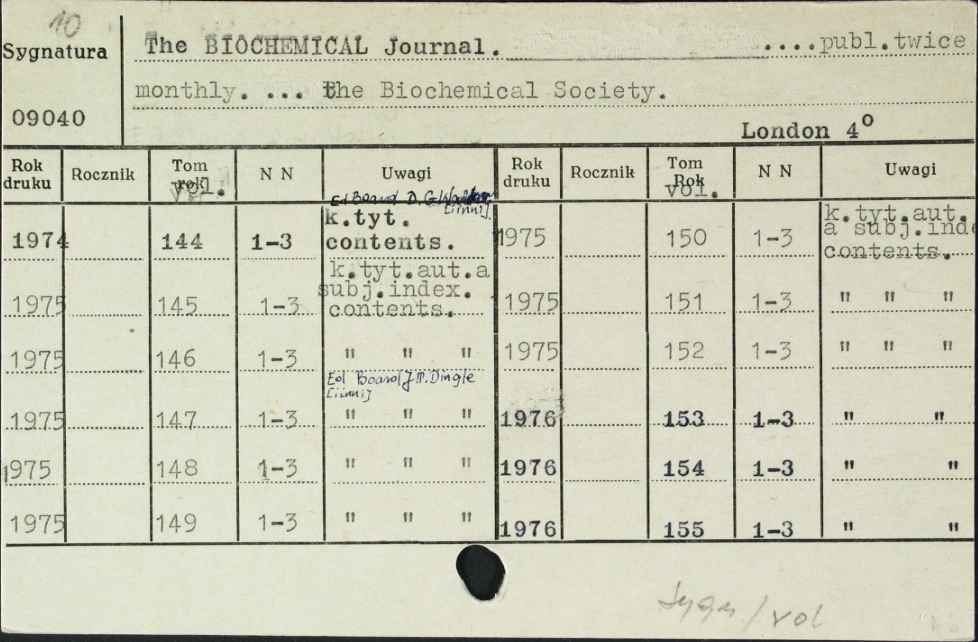 10
Sygnatura
The BIOCHEMICAL Journal. ....publ.twice
monthly. ... the Biochemical Society.
09040
London 4º
Rok druku Rocznik Tom rok vol. N N Uwagi Rok druku Rocznik Tom Rok vol. N N Uwagi
Ed Board D.G.
[i inni].
1974 144 1-3 k.tyt. contents. 1975 150 1-3 k.tyt.aut.a subj.inde contents.
1975 145 1-3 k.tyt.aut.a subj.index. contents. 1975 151 1-3 " " "
1975 146 1-3 " " " 1975 152 1-3 " " "
Ed Board J.T. Dingle
[i inni]
1975 147 1-3 " " " 1976 153 1-3 " "
1975 148 1-3 " " " 1976 154 1-3 " "
1975 149 1-3 " " " 1976 155 1-3 " "
/ vol